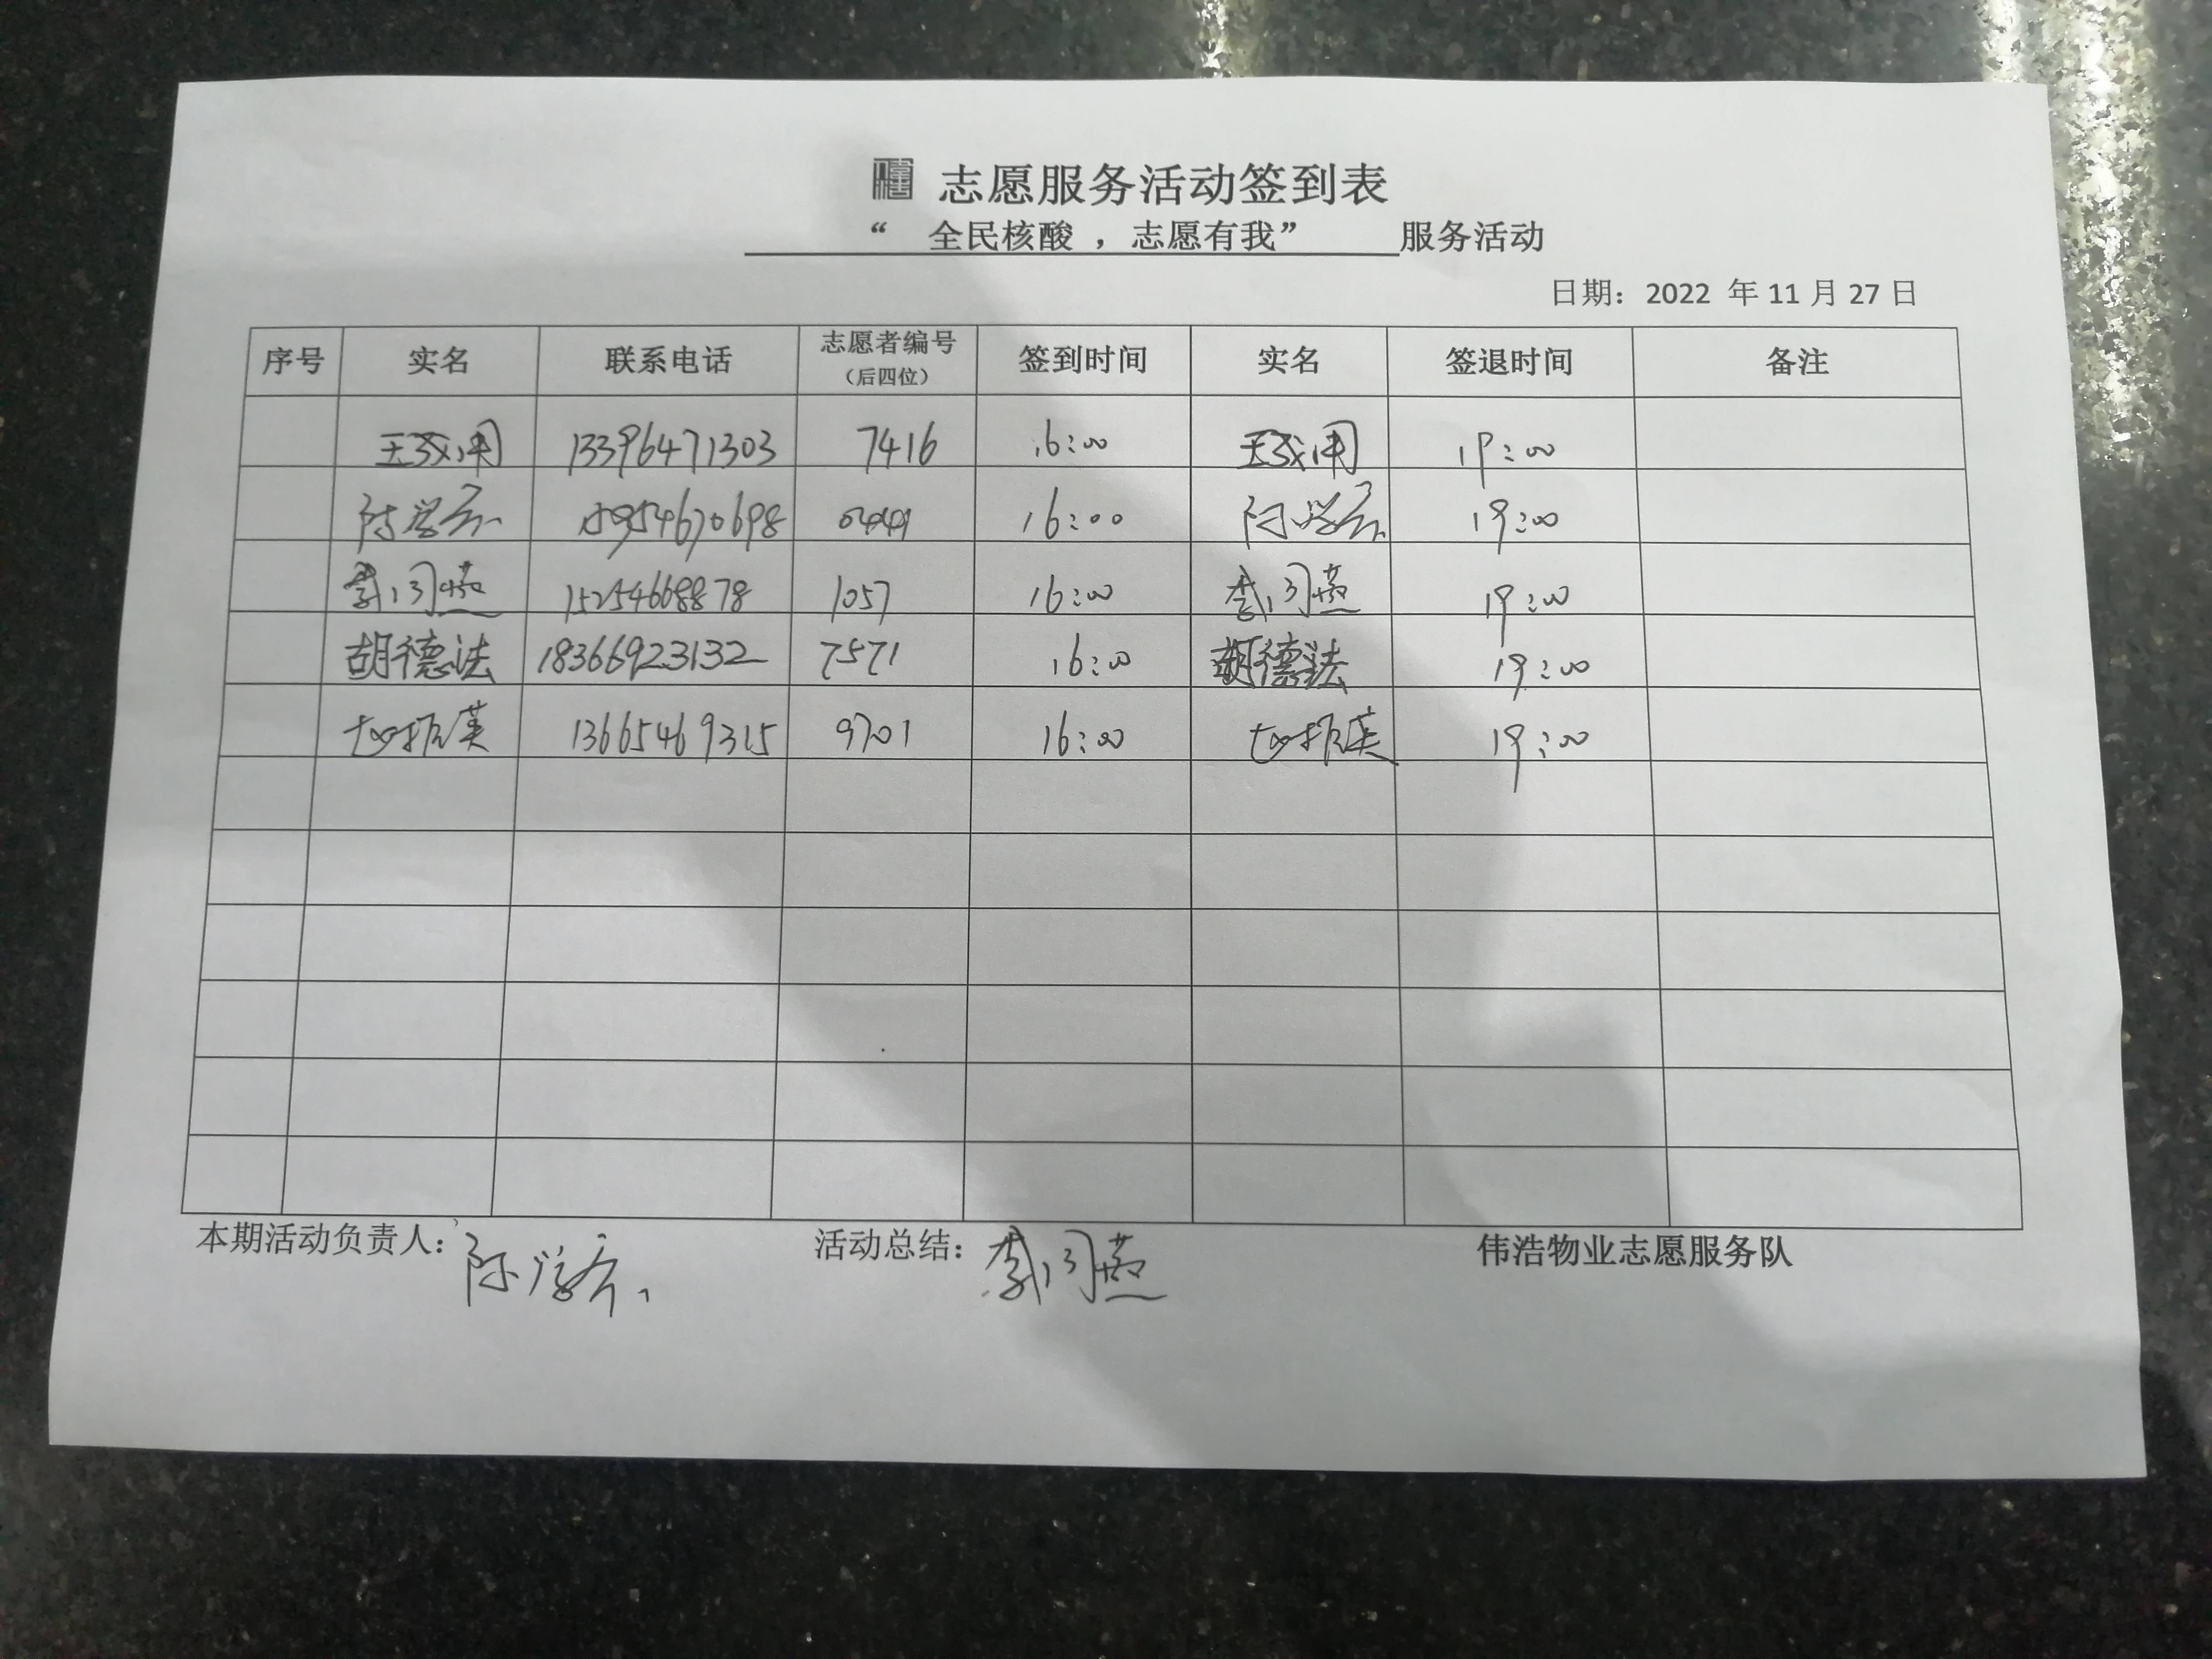 志愿服务活动签到表
“ 全民核酸 ，志愿有我” 服务活动
日期：2022 年 11 月 27 日
序号 实名 联系电话 志愿者编号（后四位） 签到时间 实名 签退时间 备注
13396471303 7416 16:00 19:00
15954670698 16:00 19:00
15254668878 1057 16:00 19:00
胡德法 18366923132 7571 16:00 胡德法 19:00
13665469315 9701 16:00 19:00
本期活动负责人： 活动总结： 伟浩物业志愿服务队